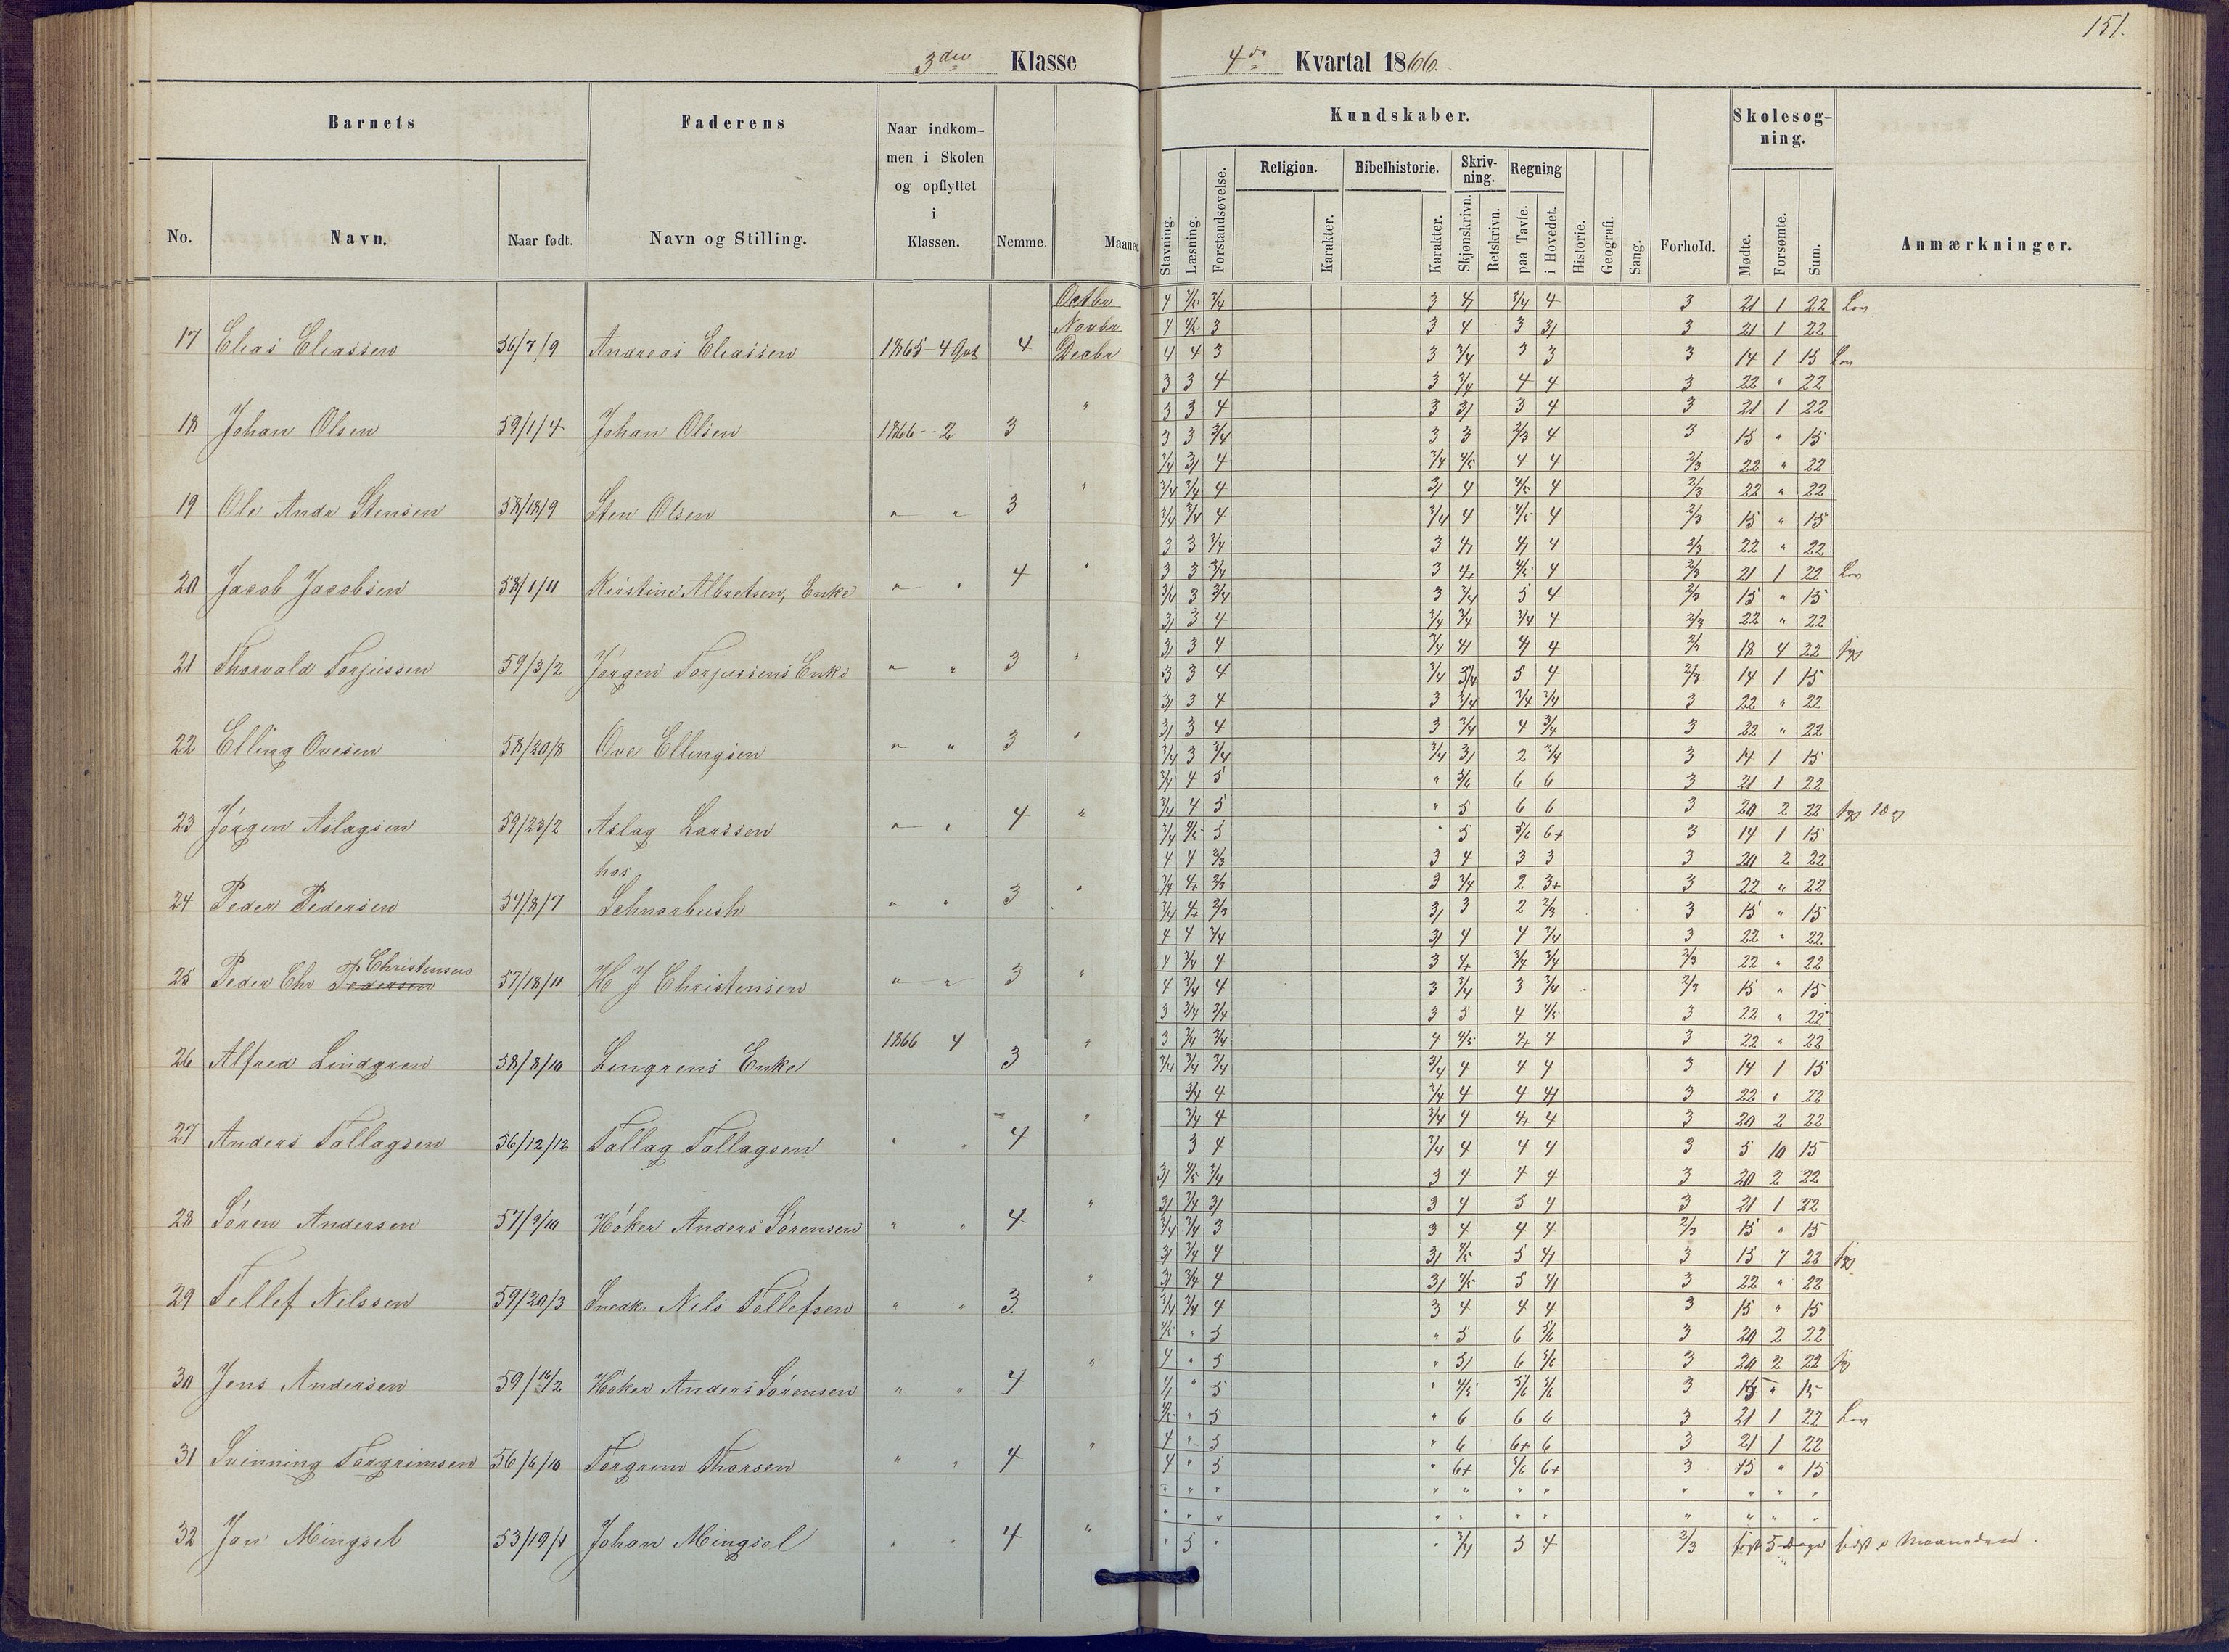 151.
3die Klasse 4de Kvartal 1866.
Barnets Faderens Naar indkommen i Skolen og opflyttet i Klassen. Nemme. Maaned
No. Navn. Naar født. Navn og Stilling.
Kundskaber. Forhold. Skolesøgning. Anmærkninger.
Stavning. Læsning. Forstandsøvelse. Religion. Karakter. Bibelhistorie. Karakter. Skrivning. Skjønskrivn. Retskrivn. Regning paa Tavle. i Hovedet. Historie. Geografi. Sang. Mødte. Forsømte. Sum.
Octbr
Novbr
17 Elias Eliassen 56/7/9 Andreas Eliassen 1865-4 Qvt 4 Decbr
18 Johan Olsen 59/1/4 Johan Olsen 1866-2 3 "
19 Ole Andr Stensen 58/18/9 Sten Olsen " " 3 "
20 Jacob Jacobsen 58/1/11 Kirstine Albretsen, Enke " " 4 "
21 Thorvald Torjussen 59/3/2 Jørgen Torjussens Enke " " 3 "
22 Elling Ovesen 58/20/8 Ove Ellingsen " " 3 "
23 Jørgen Aslagsen 59/23/2 Aslag Larssen " " 4 "
hos
24 Peder Pedersen 54/8/7 Schnorbush " " 3 "
Christensen
25 Peder Chr Pedersen 57/18/11 H J Christensen " " 3 "
26 Alfred Lindgren 58/8/10 Lingrens Enke 1866-4 3 "
27 Anders Tallagsen 56/12/12 Tallag Tallagsen " " 4 "
28 Søren Andersen 57/9/10 Høker Anders Sørensen " " 4 "
29 Tellef Nilssen 59/20/3 Snedk. Nils Tellefsen " " 3. "
30 Jens Andersen 59/16/2 Høker Anders Sørensen " " 4 "
31 Svenning Torgrimsen 56/6/10 Torgrim Thorsen " " 4 "
32 Jan Mingsel 53/19/1 Johan Mingsel " " 4 "
4 3/4 3 4/ 3/4 4 3 21 1 22
4 4/5 3 3 4 3 3/ 3 21 1 22
4 4 3 3 3/4 3 3 3 14 1 15
3 3 4 3 3/4 4 4 3 22 " 22
3 3 4 3 3/ 3 4 3 21 1 22
3 3 3/4 3 3 2/3 4 3 15 " 15
3/4 3/ 4 3/4 4/5 4 4 2/3 22 " 22
3/4 3/4 4 3/ 4 4/5 4 2/3 22 " 22
3/4 3/4 4 3/4 4 4/5 4 2/3 15 " 15
3 3 3/4 3 4/ 4/ 4 2/3 22 " 22
3 3 3/4 3 4+ 4/5 4 2/3 21 1 22
3/4 3 3/4 3 3/4 5 4 2/3 15 " 15
3/ 3 4 3/4 3/4 3/4 4 2/3 22 " 22
3/ 3 4 3/4 4/ 4/ 4 2/3 18 4 22 syg
3 3 4 3/4 3/4 5 4 2/3 14 1 15
3/ 3 4 3 3/4 3/4 3/4 3 22 " 22
3/ 3 4 3 3/4 4 3/4 3 22 " 22
3/4 3 3/4 3/4 3/ 2 3/4 3 14 1 15
3/4 4 5 " 5/6 6 6 3 21 1 22
3/4 4 5 " 5 6 6 3 20 2 22 syg
3/4 4/5 5 " 5 5/6 6+ 3 14 1 15
4 4 2/3 3 4 3 3 3 20 2 22
3/4 4+ 2/3 3 3/4 2 3+ 3 22 " 22
3/4 4+ 2/3 3/ 3 2 2/3 3 15 " 15
4 4 3/4 3/ 4 4 3/4 3 22 " 22
4 3/4 4 3 4+ 3/4 3/4 2/3 22 " 22
4 3/4 4 3 3/4 3 3/4 2/3 15 " 15
3 3/4 3/4 3 5 4 4/5 3 22 " 22
3 3/4 3/4 4 4/5 4+ 4 3 22 " 22
3/4 3/4 3/4 3/4 4 4 4 3 14 1 15
3/4 4 3/4 4 4 4/ 3 22 " 22
3/4 4 3/4 4 4+ 4 3 20 2 22
3 4 3/4 4 4 4 3 5 10 15
3/ 4/5 3/4 3 4 4 4 3 20 2 22
3/ 3/4 3/ 3 4 5 4 3 21 1 22
3/4 3/4 3 3 4 4 4 2/3 15 " 15
3/ 3/4 4 3/ 4/5 5 4/ 3 15 7 22 syg
3/ 3/4 4 3/ 4/5 5 4/ 3 22 " 22
3/4 3/4 4 3 4 4 4 3 15 " 15
4/5 " 5 " 5 6 5/6 3 20 2 22
4 " 5 " 5/ 6 5/6 3 20 2 22 syg
4/ " 5 " 4/5 5/6 5/6 3 15 " 15
4/5 " 5 " 6 6 6 3 21 1 22
4 " 5 " 6 6+ 6 3 21 1 22
4 " 5 " 6+ 5/6 6+ 3 15 " 15
" " " " " " " " " " "
" " " " " " " " " " "
" 5 " " 3/4 5 4 2/3 5 Dage sidst i Maaneden.